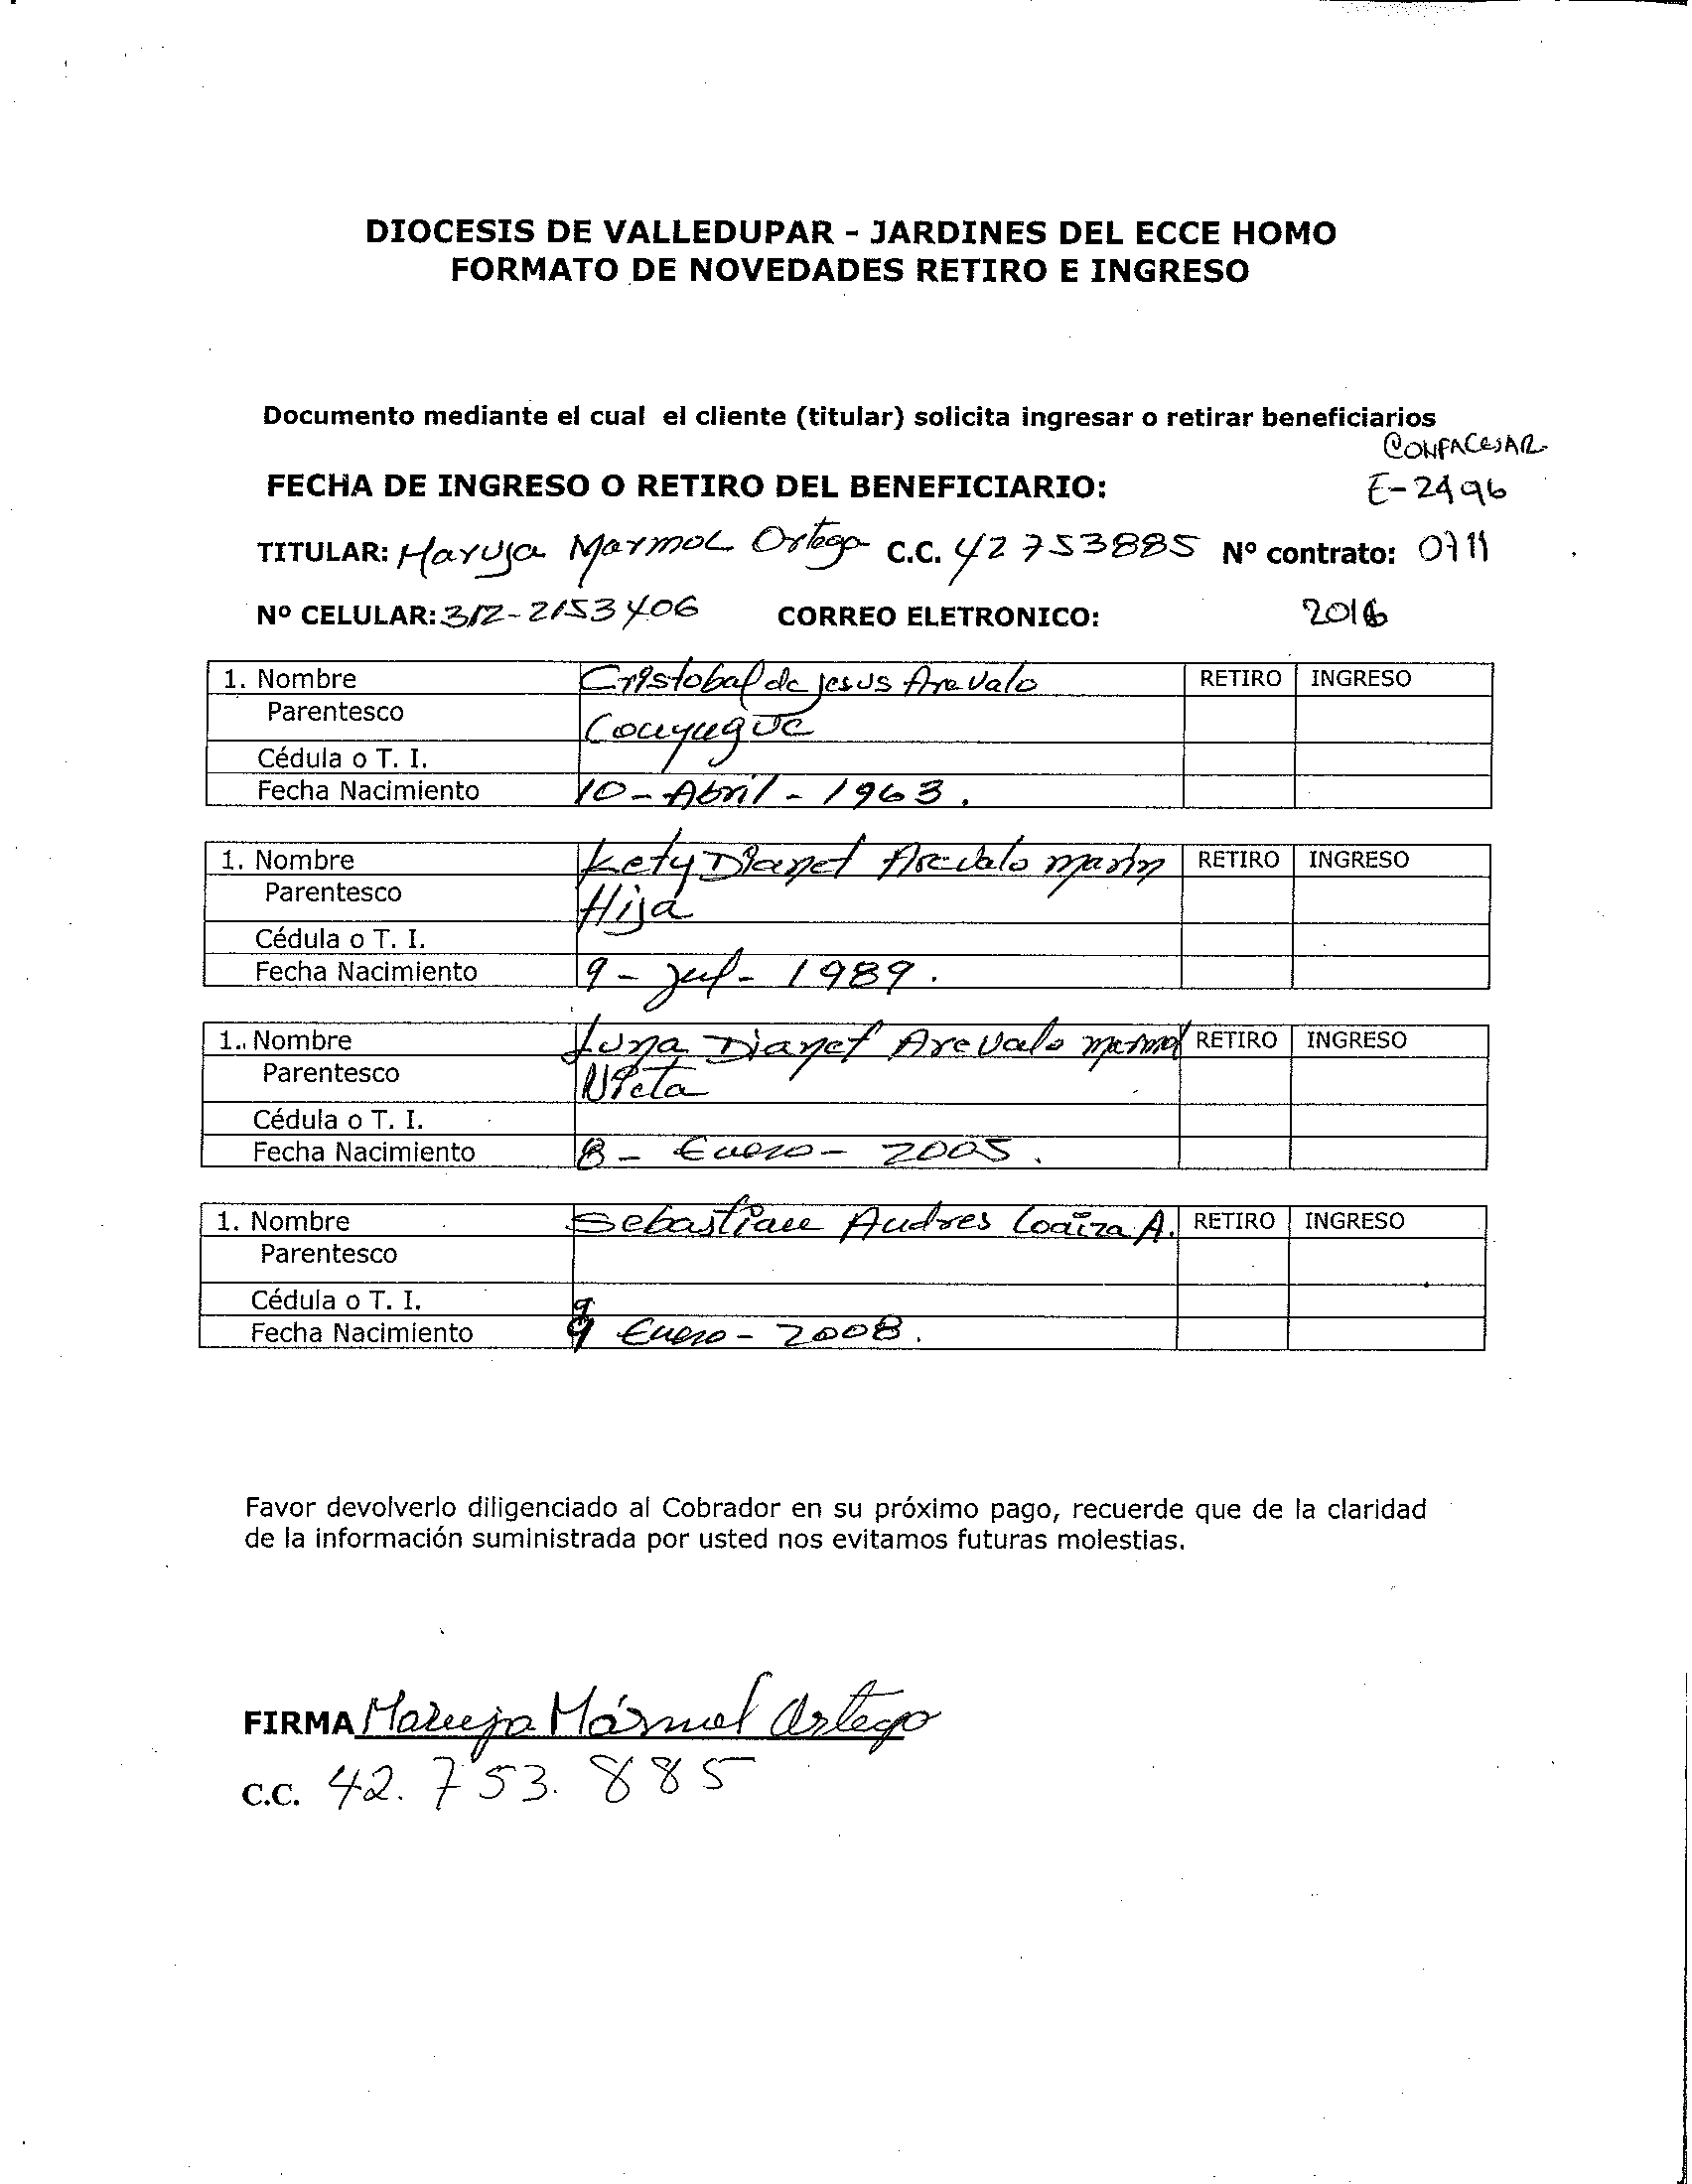 DIOCESIS DE VALLEDUPAR - JARDINES DEL ECCE HOMO
FORMATO DE NOVEDADES RETIRO E INGRESO
Documento mediante el cual el cliente (titular) solicita ingresar o retirar beneficiarios
CONFACESAR
FECHA DE INGRESO O RETIRO DEL BENEFICIARIO: E-2496
TITULAR: Maruja Marmol Ortega C.C. 42 753885 Nº contrato: 0711
Nº CELULAR: 312-2153406 CORREO ELETRONICO: 2016
1. Nombre Cristobal de Jesus Arevalo RETIRO INGRESO
Parentesco Conyugue
Cédula o T. I.
Fecha Nacimiento 10-Abril-1963.
1. Nombre Kety Dianet Arevalo RETIRO INGRESO
Parentesco Hija
Cédula o T. I.
Fecha Nacimiento 9-Jul-1989.
1. Nombre Luna Dianet Arevalo Marmol RETIRO INGRESO
Parentesco Nieta
Cédula o T. I.
Fecha Nacimiento 8-Enero-2005.
1. Nombre Sebastian Andres Loaiza A. RETIRO INGRESO
Parentesco
Cédula o T. I. 9
Fecha Nacimiento 9 Enero-2008.
Favor devolverlo diligenciado al Cobrador en su próximo pago, recuerde que de la claridad
de la información suministrada por usted nos evitamos futuras molestias.
FIRMA Maruja Mármol Ortega
C.C. 42.753.885